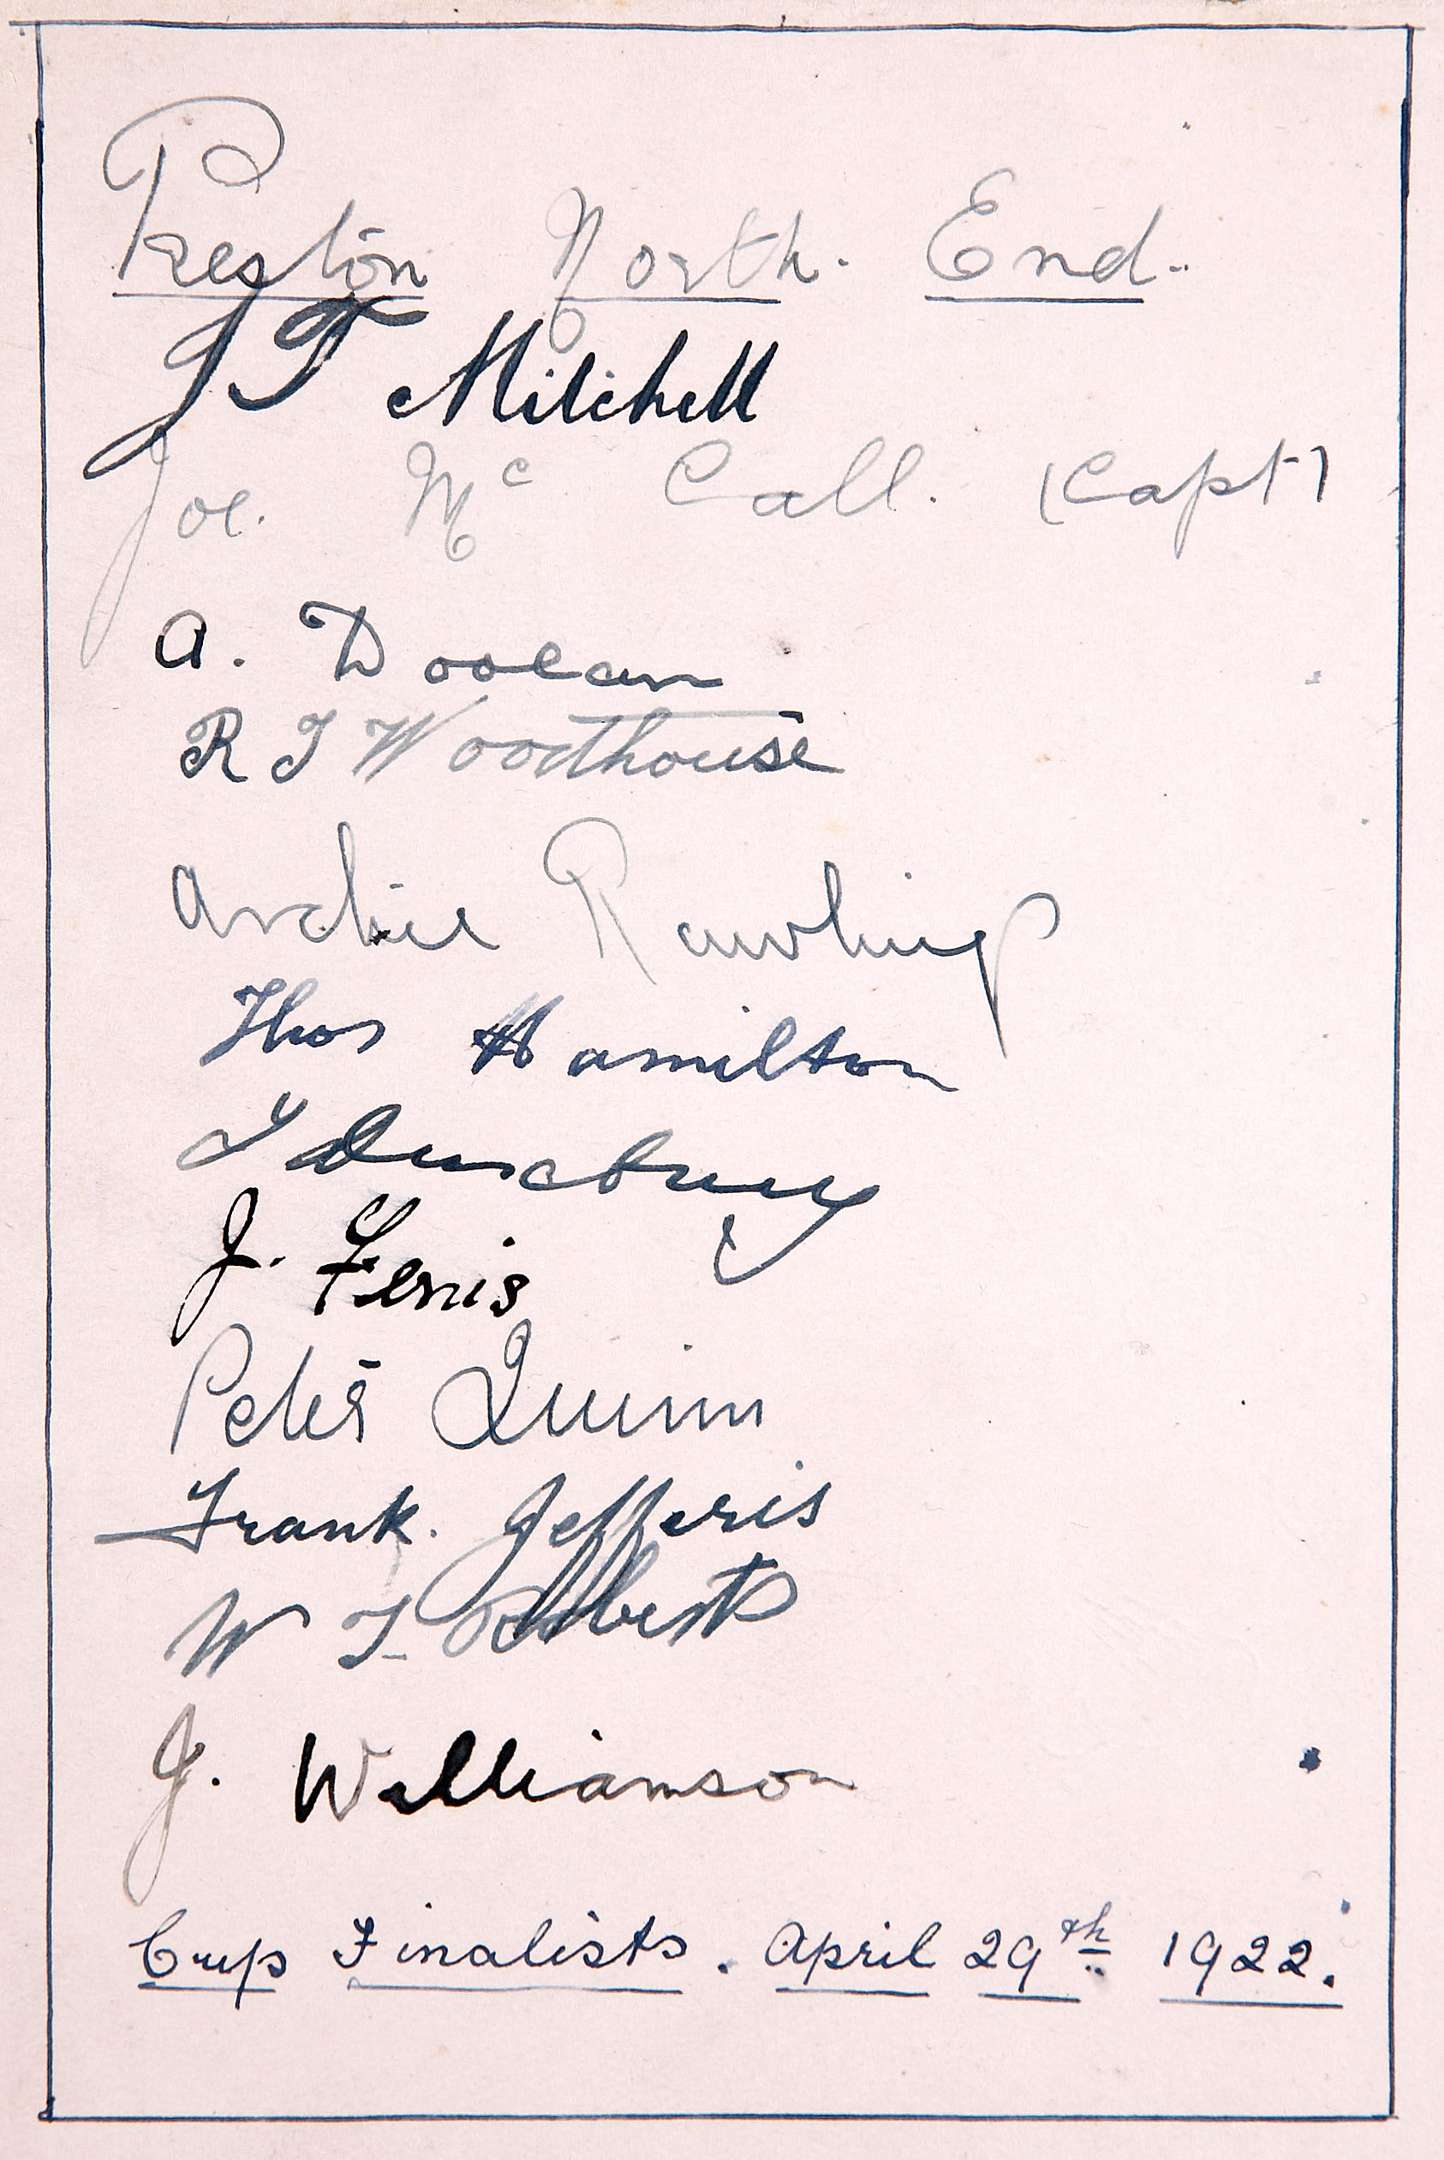 Preston North. End.
J F Mitchell
Joe. Mc Call. (Capt)
A. Doolan
R T Woodhouse
Archie Rawlings
Thos Hamilton
T Duxbury
J. Ferris
Peter Quinn
Frank. Jefferis
W T Roberts
J. Williamson
Cup Finalists. April 29th 1922.